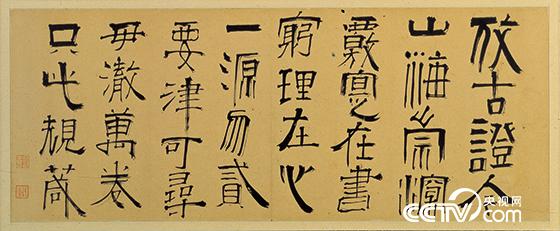 攷古證今
山海崇深
覈寔在書
窮理在心
一源勿貳
要津可尋
毋澈萬卷
只此規箴
CCTV 央视网
com